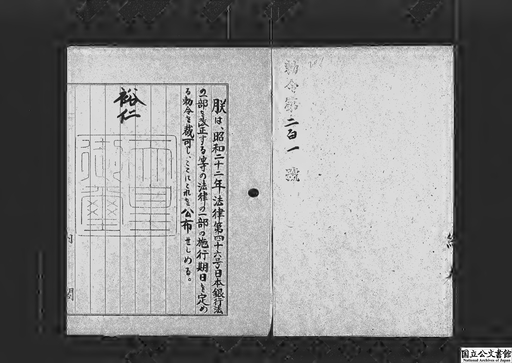 勅令第二百一號
朕は、昭和二十二年法律第四十六号日本銀行法
の一部を改正する等の法律の一部の施行期日を定め
る勅令を裁可し、ここにこれを公布せしめる。
裕仁
天皇
御璽
内
閣
国立公文書館
National Archives of Japan